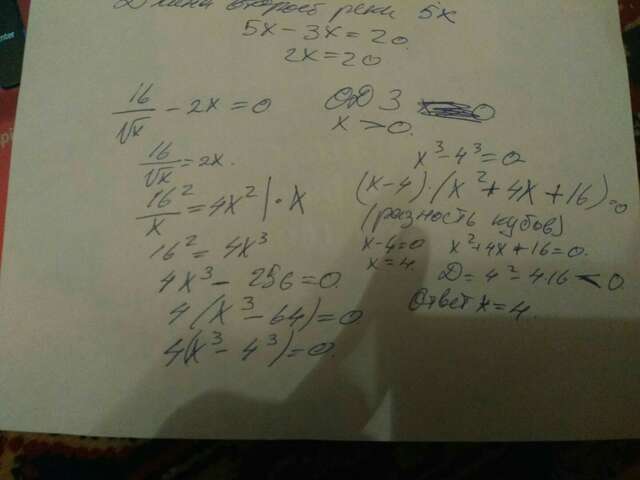 Длина второй реки 5x
5x - 3x = 20
2x = 20
16/√x - 2x = 0
ОДЗ
x > 0.
16/√x = 2x.
16²/x = 4x² | · x
16² = 4x³
4x³ - 256 = 0.
4(x³ - 64) = 0.
4(x³ - 4³) = 0.
x³ - 4³ = 0
(x-4)·(x² + 4x + 16) = 0
(разность кубов)
x-4=0 x²+4x+16=0.
x=4. D = 4² - 4·16 < 0.
Ответ x = 4.